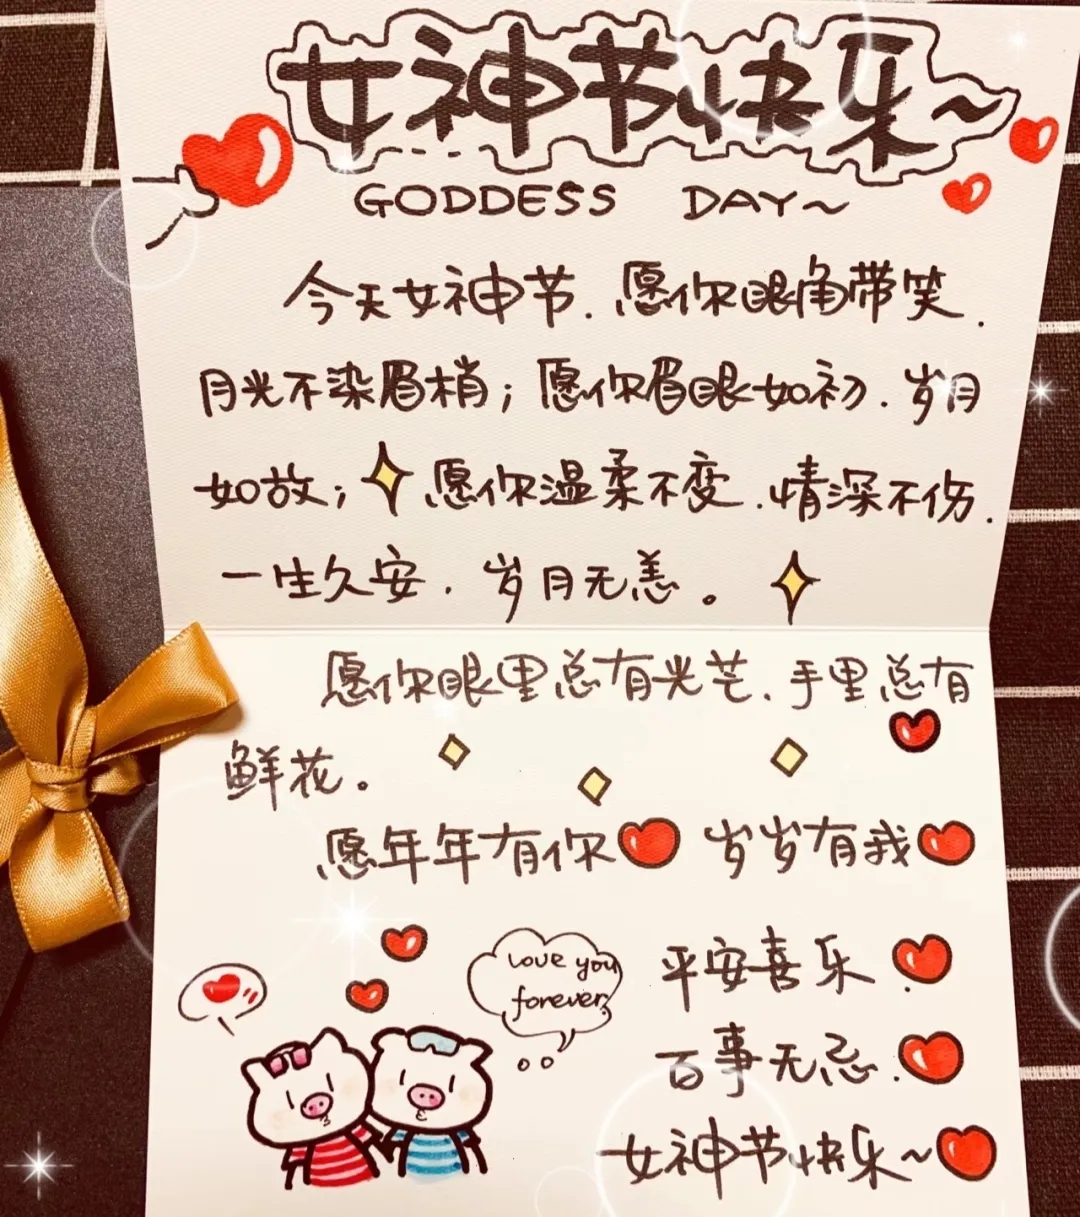 女神节快乐~
GODDESS DAY~
今天女神节.愿你眼角带笑.
月光不染眉梢;愿你眉眼如初.岁月
如故;愿你温柔不变.情深不伤.
一生久安.岁月无恙。
愿你眼里总有光芒、手里总有
鲜花。
愿年年有你 岁岁有我
Love you
forever
平安喜乐.
百事无忌.
女神节快乐~